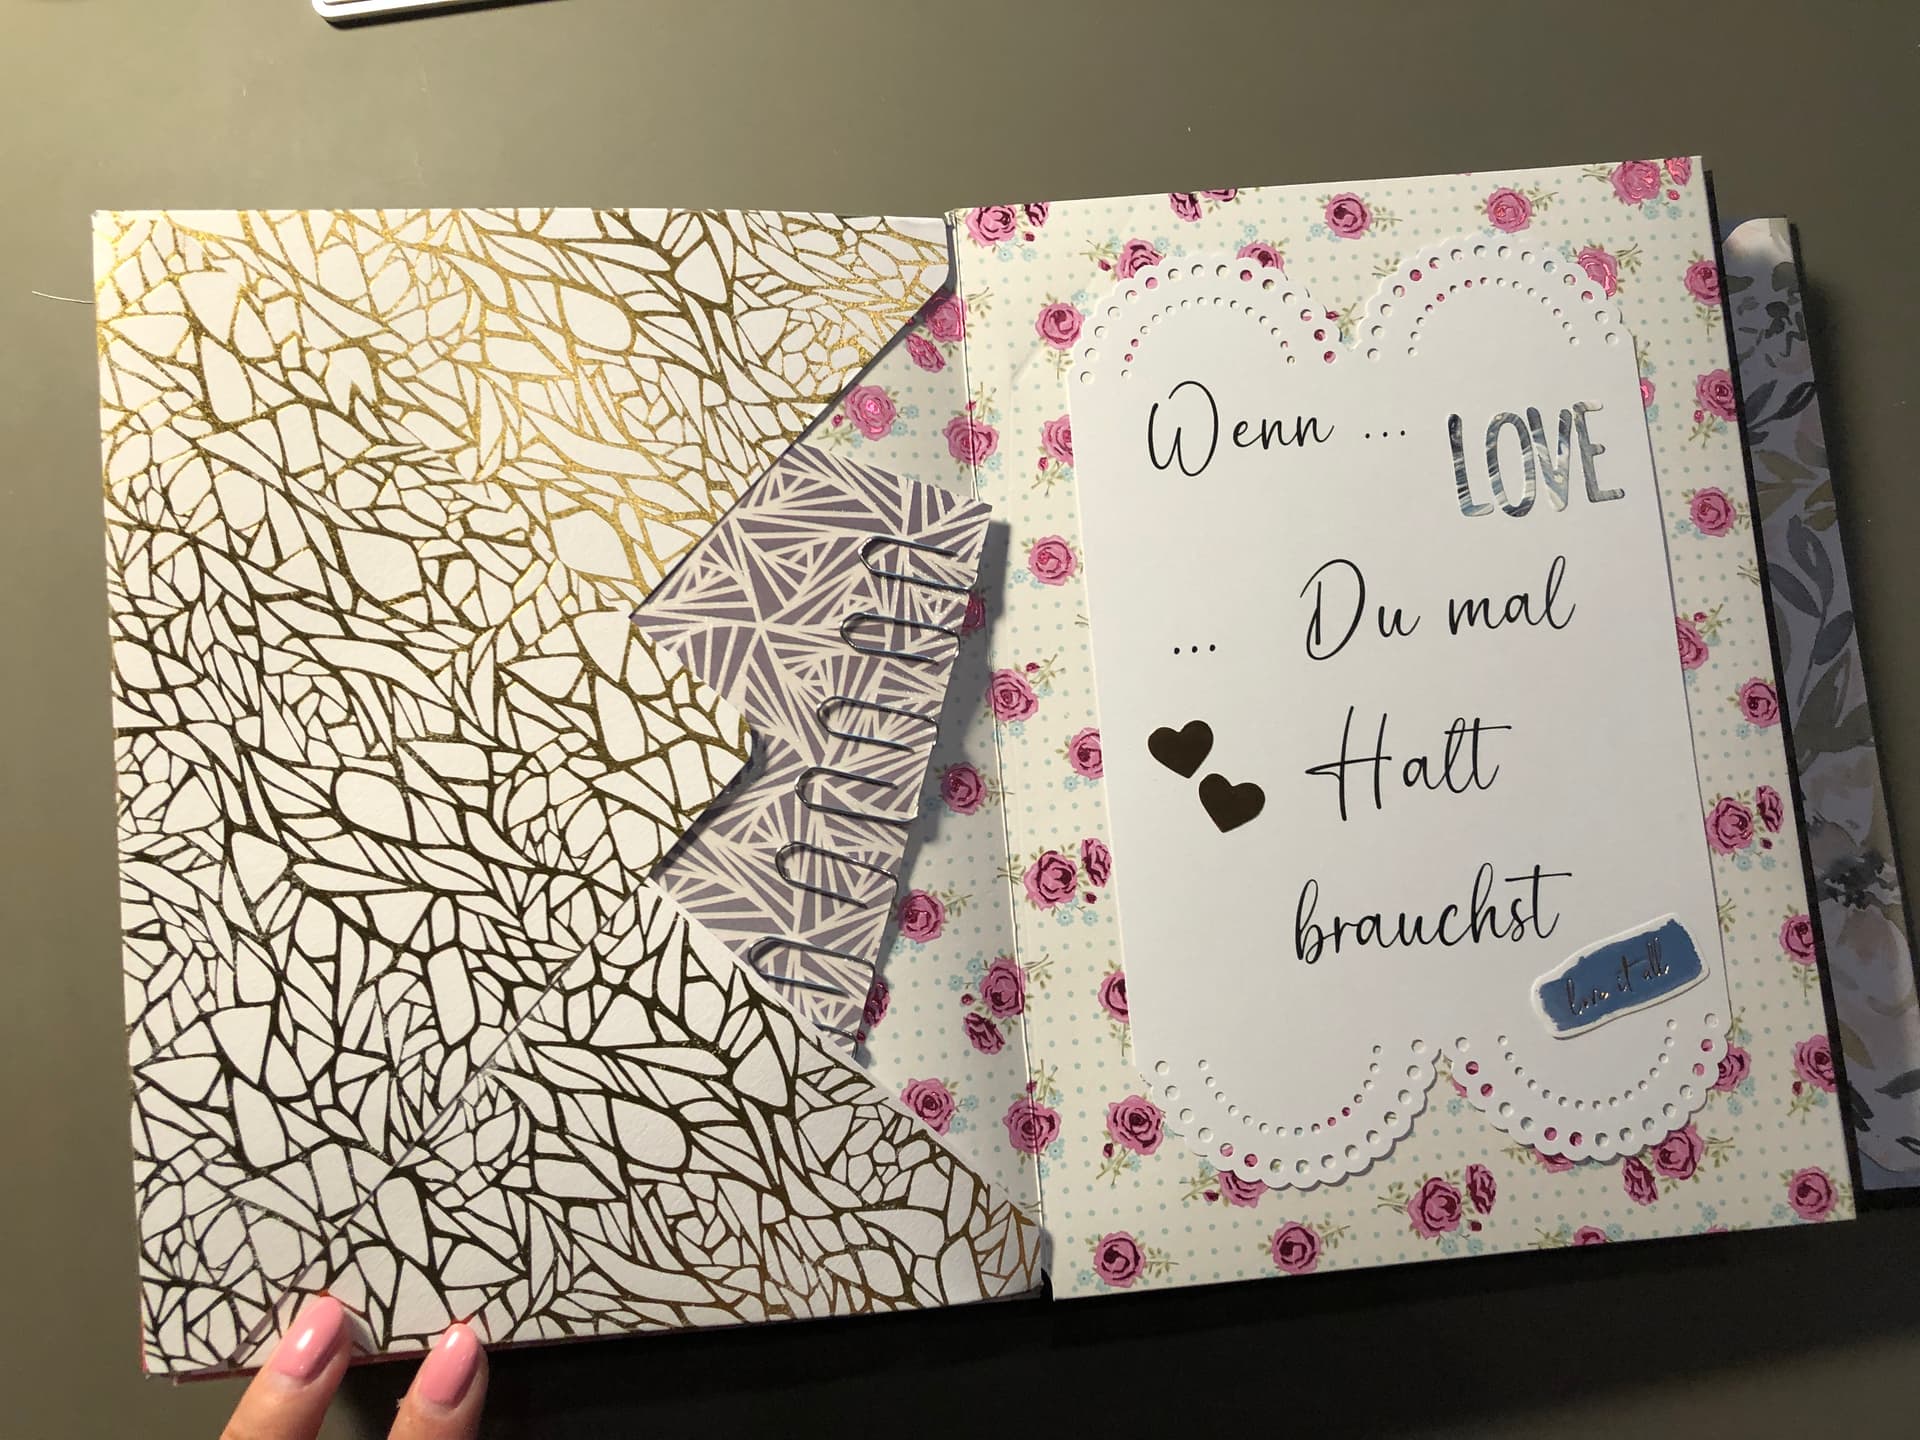 Wenn ... LOVE
... Du mal
Halt
brauchst
love it all